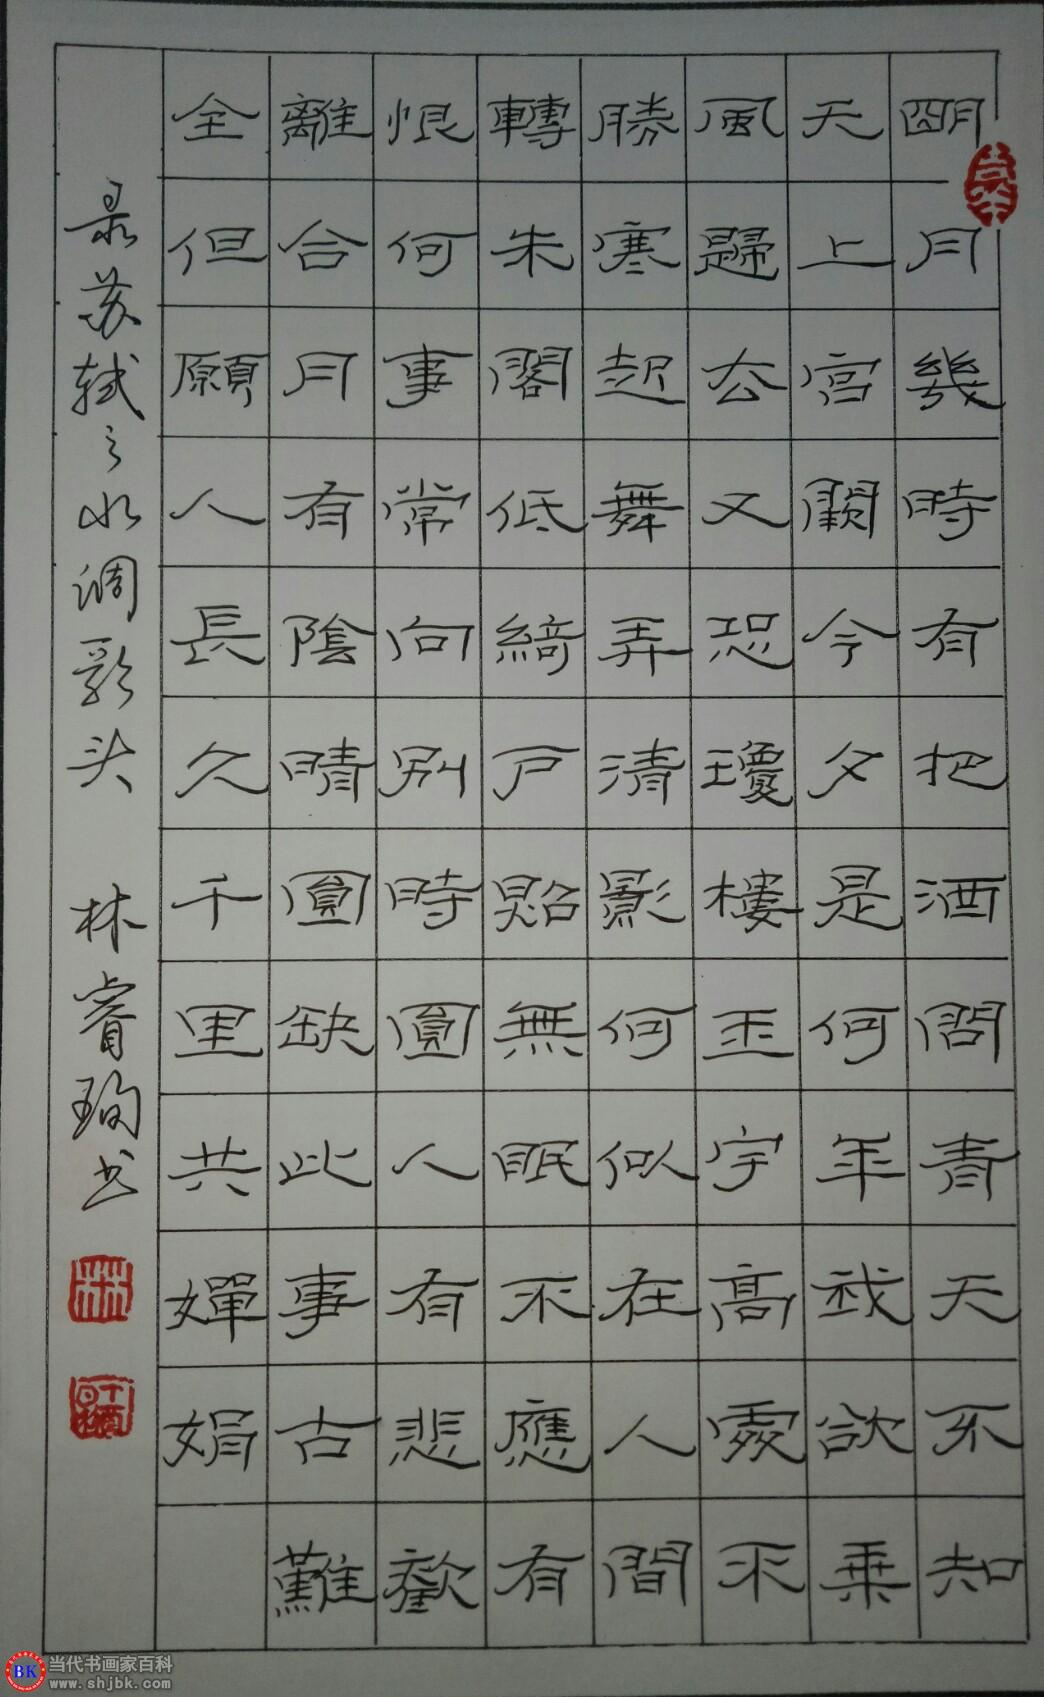 明月幾時有把酒問青天不知
天上宫闕今夕是何年我欲乗
風歸去又恐瓊樓玉宇髙處不
勝寒起舞弄清影何似在人間
轉朱閣低綺戸照無眠不應有
恨何事常向别時圓人有悲歡
離合月有陰晴圓缺此事古難
全但願人長久千里共嬋娟
录苏轼之水调歌头 林睿珣书
当代书画家百科
BK
www.shjbk.com